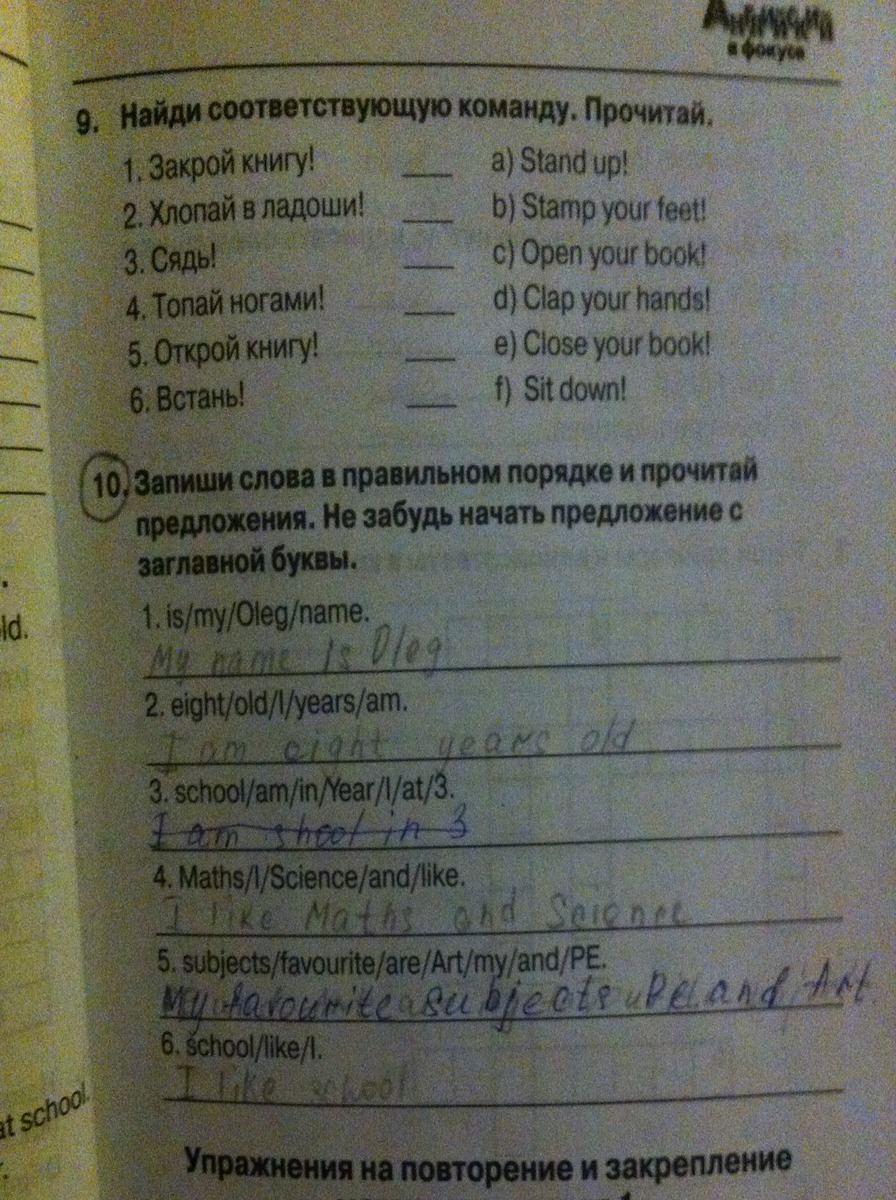 Английский
в фокусе
9. Найди соответствующую команду. Прочитай.
1. Закрой книгу! ___ a) Stand up!
2. Хлопай в ладоши! ___ b) Stamp your feet!
3. Сядь! ___ c) Open your book!
4. Топай ногами! ___ d) Clap your hands!
5. Открой книгу! ___ e) Close your book!
6. Встань! ___ f) Sit down!
10. Запиши слова в правильном порядке и прочитай
предложения. Не забудь начать предложение с
заглавной буквы.
1. is/my/Oleg/name.
My name is Oleg
2. eight/old/I/years/am.
I am eight years old
3. school/am/in/Year/I/at/3.
I am shool in 3
4. Maths/I/Science/and/like.
I like Maths and Science
5. subjects/favourite/are/Art/my/and/PE.
My favourite subjects PE and Art
6. school/like/I.
I like school
Упражнения на повторение и закрепление
ld.
at school.